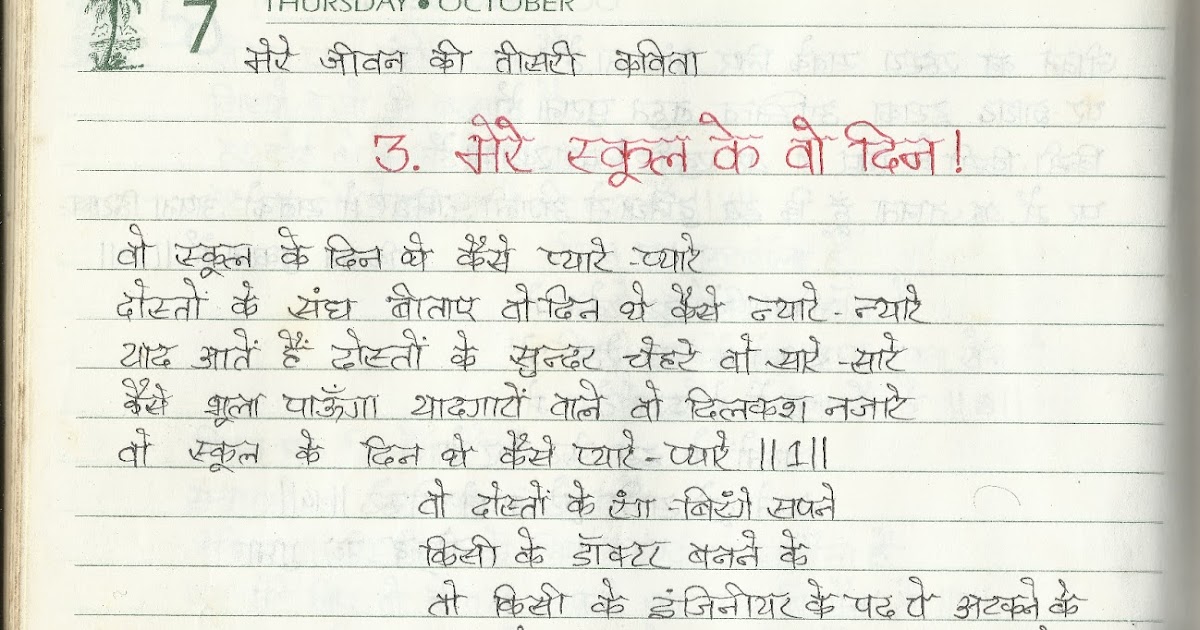 THURSDAY • OCTOBER
7
मेरे जीवन की तीसरी कविता
3. मेरे स्कूल के वो दिन!
वो स्कूल के दिन थे कैसे प्यारे -प्यारे
दोस्तों के संघ बीताए वो दिन थे कैसे न्यारे - न्यारे
याद आतें हैं दोस्तों के सुन्दर चेहरे वो सारे -सारे
कैसे भूला पाऊँगा यादगारों वाले वो दिलकश नजारे
वो स्कूल के दिन थे कैसे प्यारे- प्यारे ||1||
वो दोस्तों के रंग -बिरंगे सपने
किसी के डॉक्टर बनने के
तो किसी के इंजिनीयर के पद पे अटकने के